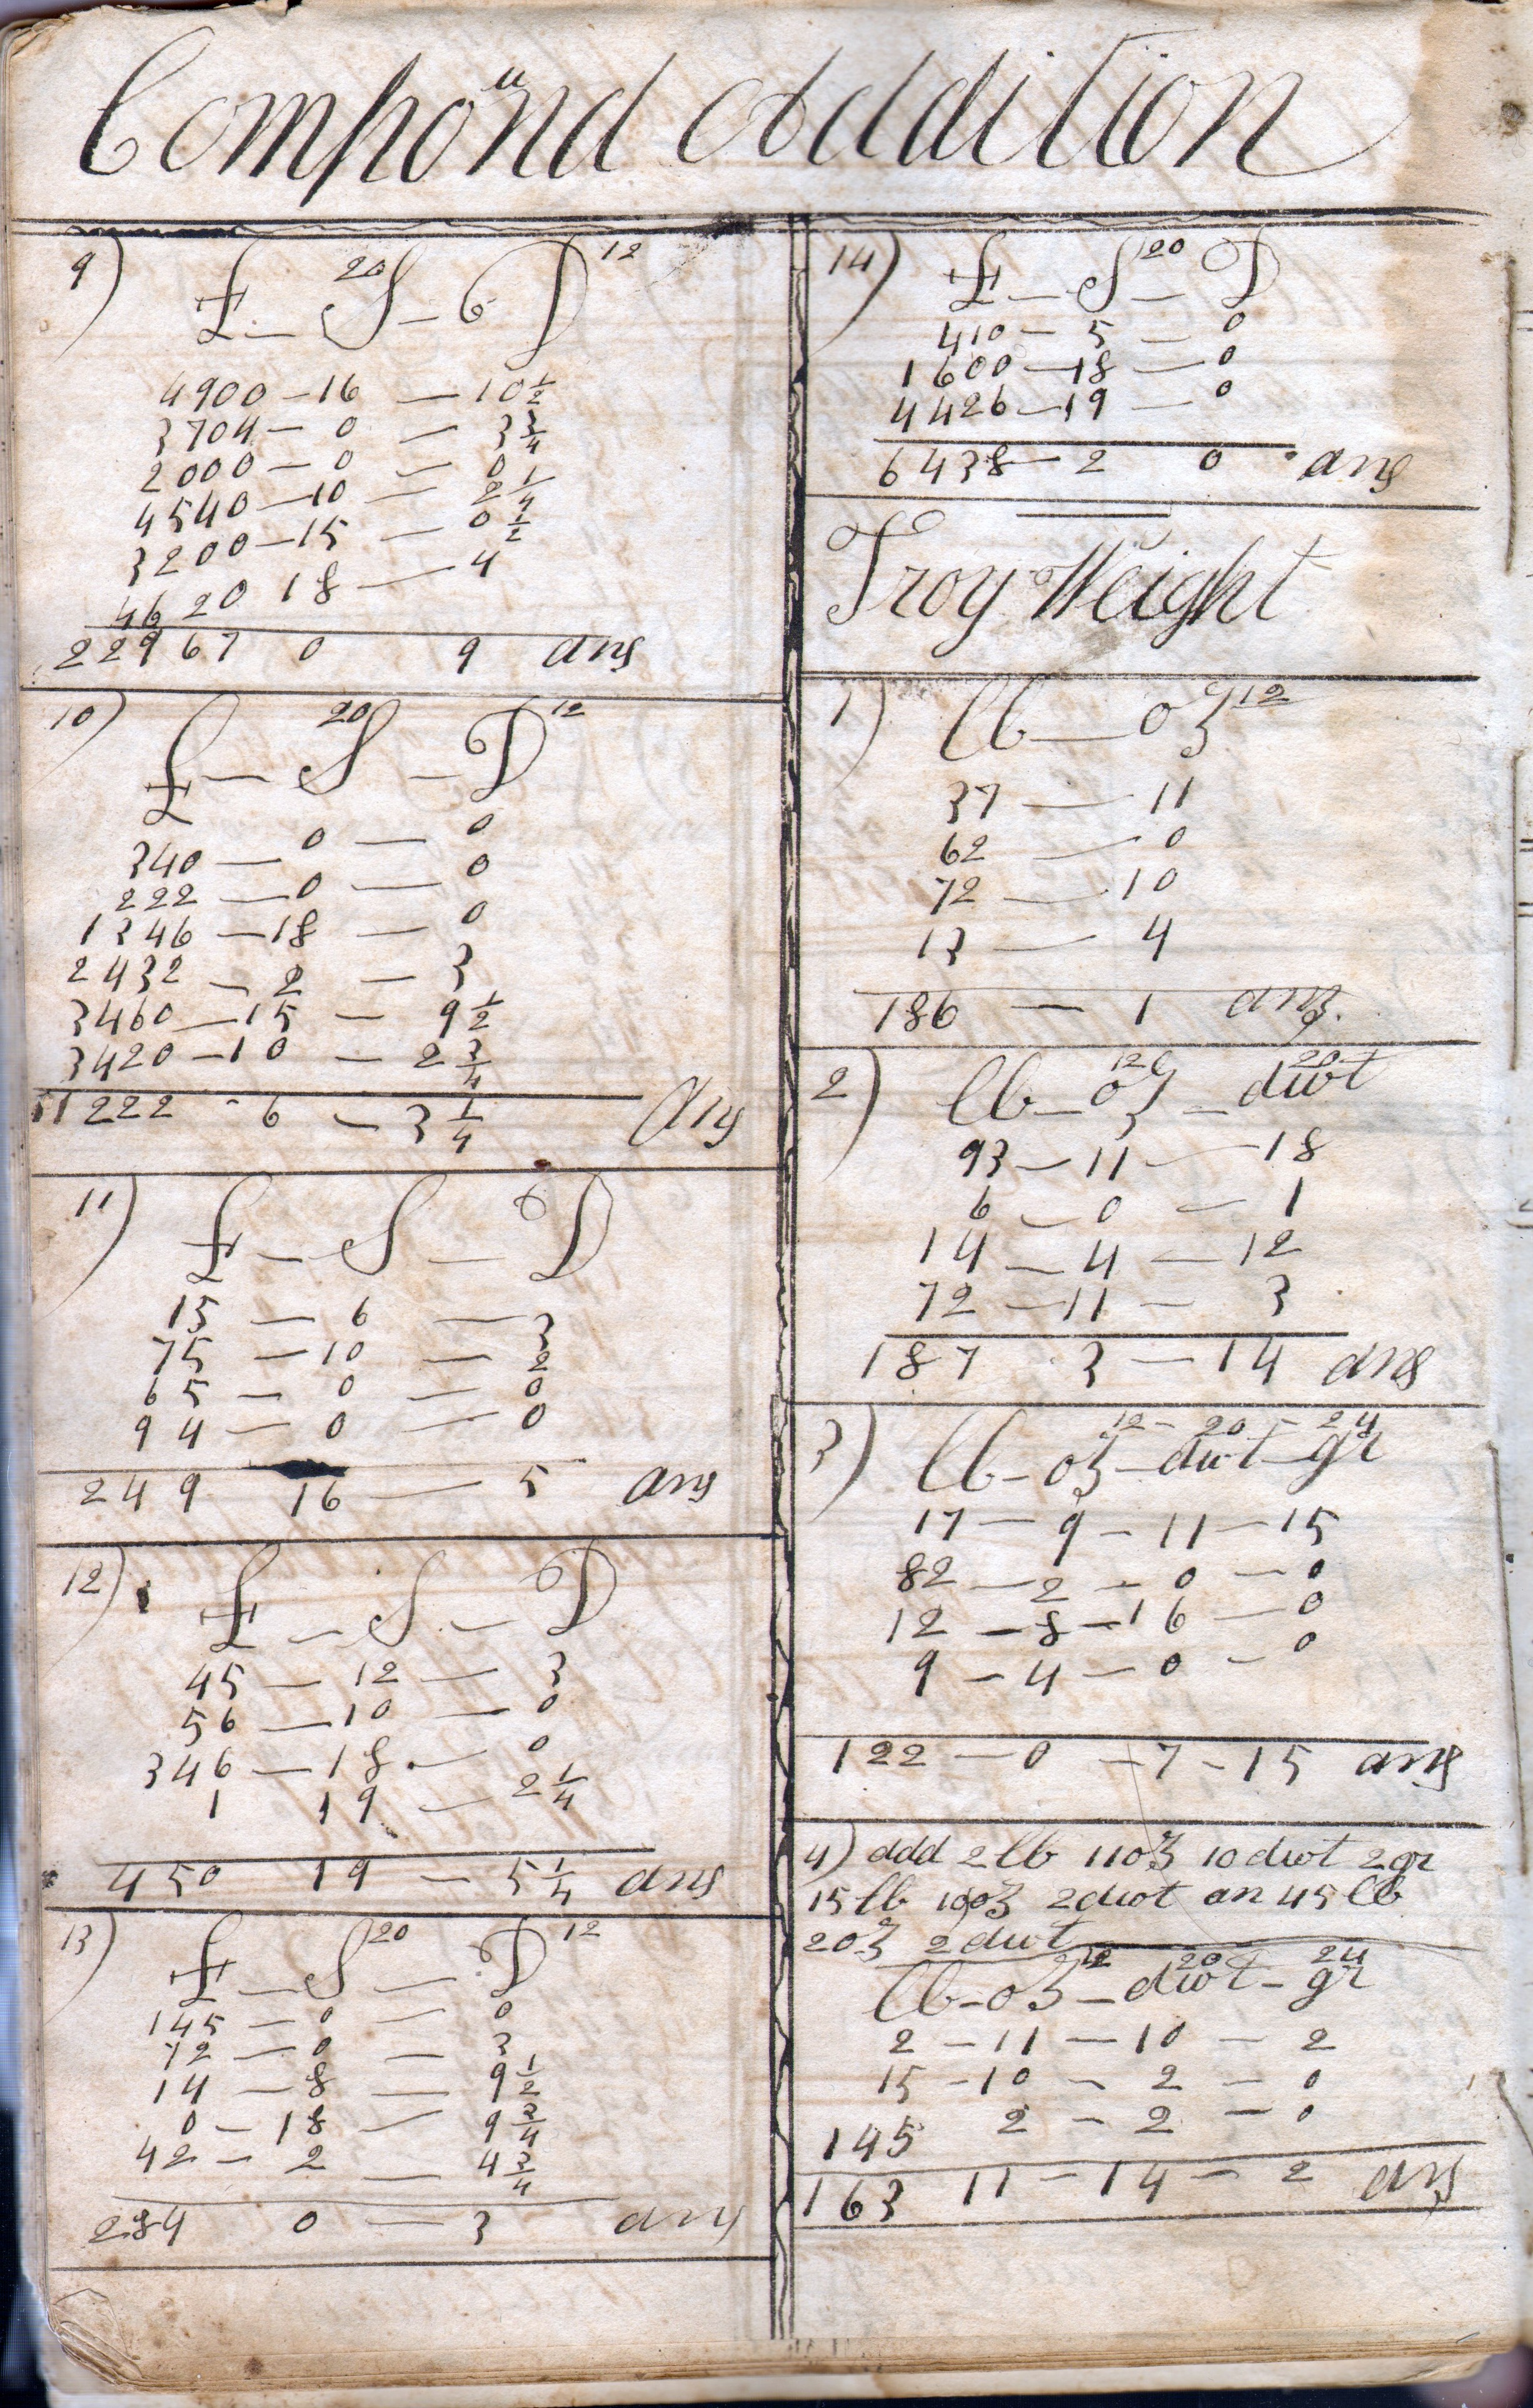 Compound Addition
9) £ — S 20 — D 12
4900 — 16 — 10 1/2
3704 — 0 — 3 3/4
2000 — 0 — 0
4540 — 10 — 2 1/4
3200 — 15 — 0 1/2
4620 18 — 4
22967 0 9 ans
10) £ — S 20 — D 12
340 — 0 — 0
222 — 0 — 0
1346 — 18 — 0
2432 — 2 — 3
3460 — 15 — 9 1/2
3420 — 10 — 2 3/4
11222 - 6 — 3 1/4 Ans
11) £ — S — D
15 — 6 — 3
75 — 10 — 2
65 — 0 — 0
94 — 0 — 0
249 16 — 5 ans
12) £ — S — D
45 — 12 — 3
56 — 10 — 0
346 — 18 — 0
1 19 — 2 1/4
450 19 — 5 1/4 ans
13) £ — S 20 — D 12
145 — 0 — 0
72 — 0 — 3
14 — 8 — 9 1/2
0 — 18 — 9 3/4
42 — 2 — 4 3/4
284 0 — 3 ans
14) £ — S 20 — D
410 — 5 — 0
1600 — 18 — 0
4426 — 19 — 0
6438 — 2 0 ans
Troy Weight
1) lb — oz 12
37 — 11
62 — 0
72 — 10
13 — 4
186 — 1 ans.
2) lb — oz 12 — dwt 20
93 — 11 — 18
6 — 0 — 1
14 — 4 — 12
72 — 11 — 3
187 3 — 14 ans
3) lb — oz 12 — dwt 20 — gr 24
17 — 9 — 11 — 15
82 — 2 — 0 — 0
12 — 8 — 16 — 0
9 — 4 — 0 — 0
122 — 0 — 7 — 15 ans
4) add 2 lb 11oz 10 dwt 2gr
15 lb 10oz 2dwt an 45 lb
2oz 2dwt
lb — oz 12 — dwt 20 — gr 24
2 — 11 — 10 — 2
15 — 10 — 2 — 0
145 2 — 2 — 0
163 11 — 14 — 2 ans